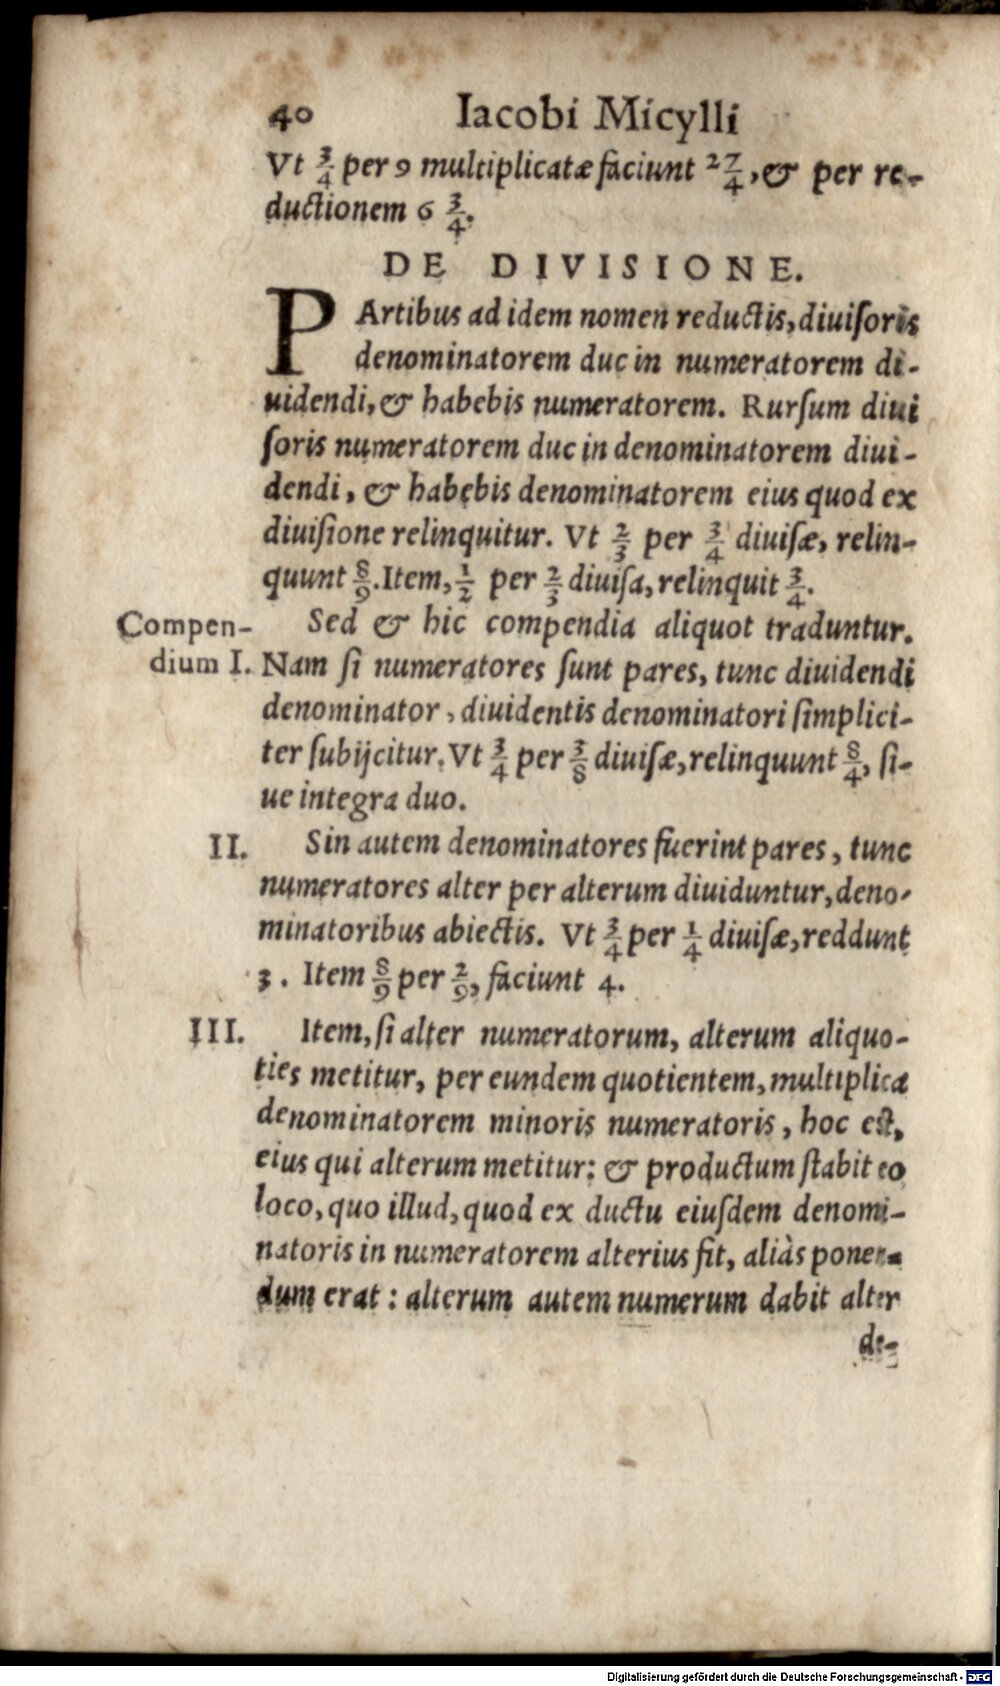 40 Iacobi Micylli
Vt 3/4 per 9 multiplicatæ faciunt 27/4, & per re-
ductionem 6 3/4.
DE DIVISIONE.
PArtibus ad idem nomen reductis, diuiſoris
denominatorem duc in numeratorem di-
uidendi, & habebis numeratorem. Rurſum diui
ſoris numeratorem duc in denominatorem diui-
dendi, & habebis denominatorem eius quod ex
diuiſione relinquitur. Vt 2/3 per 3/4 diuiſæ, relin-
quunt 8/9. Item, 1/2 per 2/3 diuiſa, relinquit 3/4.
Compen- Sed & hic compendia aliquot traduntur.
dium I. Nam ſi numeratores ſunt pares, tunc diuidendi
denominator, diuidentis denominatori ſimplici-
ter ſubijcitur. Vt 3/4 per 3/8 diuiſæ, relinquunt 8/4, ſi-
ue integra duo.
II. Sin autem denominatores fuerint pares, tunc
numeratores alter per alterum diuiduntur, deno-
minatoribus abiectis. Vt 3/4 per 1/4 diuiſæ, reddunt
3. Item 8/9 per 2/9, faciunt 4.
III. Item, ſi alter numeratorum, alterum aliquo-
ties metitur, per eundem quotientem, multiplica
denominatorem minoris numeratoris, hoc eſt,
eius qui alterum metitur: & productum ſtabit eo
loco, quo illud, quod ex ductu eiuſdem denomi-
natoris in numeratorem alterius fit, aliàs ponen-
dum erat: alterum autem numerum dabit alter
de-
Digitalisierung gefördert durch die Deutsche Forschungsgemeinschaft - DFG